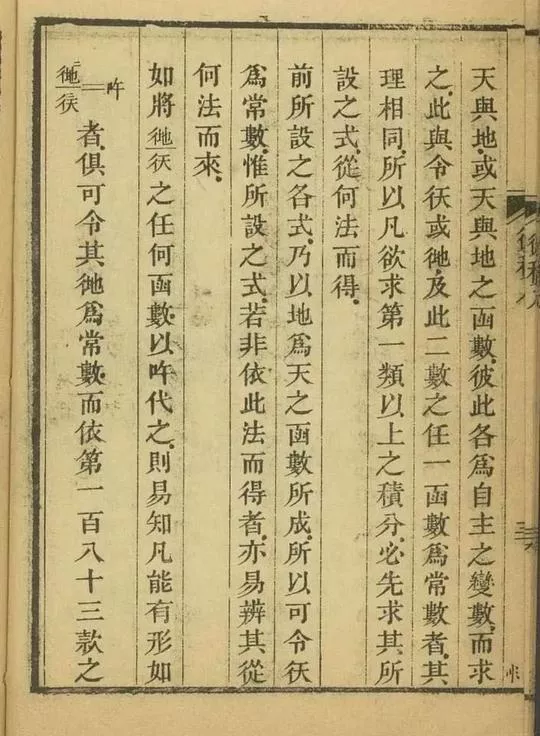 天與地、或天與地之函數、彼此各爲自主之變數、而求
之、此與令彳天或彳地、及此二數之任一函數爲常數者、其
理相同、所以凡欲求第一類以上之積分、必先求其所
設之式、從何法而得、
前所設之各式、乃以地爲天之函數所成、所以可令彳天
爲常數、惟所設之式、若非依此法而得者、亦易辨其從
何法而來、
如將彳地/彳天之任何函數、以吘代之、則易知凡能有形如
彳地/彳天=吘者、俱可令其彳地爲常數、而依第一百八十三款之